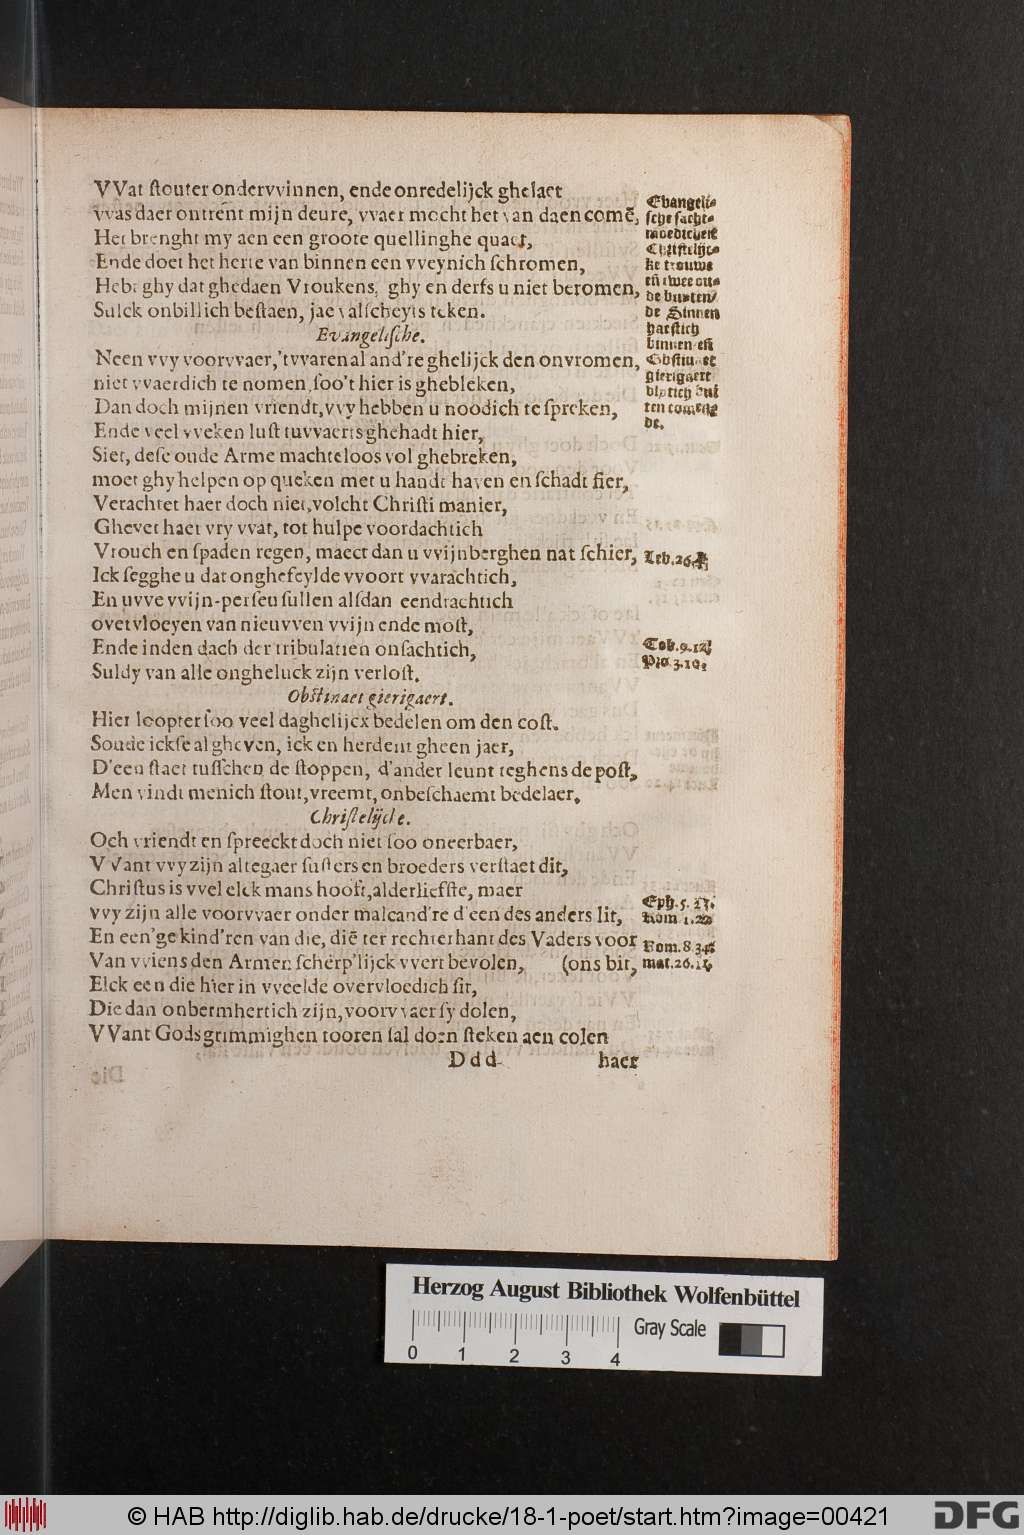 VVat ſtouter ondervvinnen, ende onredelijck ghelaet
vvas daer ontrent mijn deure, vvaer mocht het van daen comē,
Het brenght my aen een groote quellinghe quaet,
Ende doet het herte van binnen een vveynich ſchromen,
Hebt ghy dat ghedaen Vroukens, ghy en derfs u niet beromen,
Sulck onbillich beſtaen, jae valſcheyts teken.
Evangeliſche.
Neen vvy voorvvaer,'tvvaren al and're ghelijck den onvromen,
niet vvaerdich te nomen,ſoo't hier is ghebleken,
Dan doch mijnen vriendt,vvy hebben u noodich te ſpreken,
Ende veel vveken luſt tuvvaerts ghehadt hier,
Siet, deſe oude Arme machteloos vol ghebreken,
moet ghy helpen op queken met u handt haven en ſchadt ſier,
Verachtet haer doch niet,volcht Chriſti manier,
Ghevet haer vry vvat, tot hulpe voordachtich
Vrouch en ſpaden regen, maect dan u vvijnberghen nat ſchier,
Ick ſegghe u dat onghefeylde vvoort vvarachtich,
En uvve vvijn-perſeu ſullen alſdan eendrachtich
overvloeyen van nieuvven vvijn ende moſt,
Ende inden dach der tribulatien onſachtich,
Suldy van alle ongheluck zijn verloſt.
Obſtinaet gierigaert.
Hier loopter ſoo veel daghelijcx bedelen om den coſt.
Soude ickſe al gheven, ick en herdent gheen jaer,
D'een ſtaet tuſſchen de ſtoppen, d'ander leunt teghens de poſt,
Men vindt menich ſtout,vreemt,onbeſchaemt bedelaer,
Chriſtelijcke.
Och vriendt en ſpreeckt doch niet ſoo oneerbaer,
VVant vvy zijn altegaer ſuſters en broeders verſtaet dit,
Chriſtus is vvel elck mans hooft,alderliefſte, maer
vvy zijn alle voorvvaer onder malcand're d'een des anders lit,
En een'ge kind'ren van die, diē ter rechter hant des Vaders voor
Van vviens den Armen ſcherp'lijck vvert bevolen, (ons bit,
Elck een die hier in vveelde overvloedich ſit,
Die dan onbermhertich zijn,voorvvaer ſy dolen,
VVant Gods grimmighen tooren ſal doen ſteken aen colen
Ddd haer
Evangeli⸗
ſche ſacht⸗
moedicheit
Chriſtelijc⸗
ke trouwe
eñ twee ou⸗
de buyten/
de Sinnen
haeſtich
binnen/eñ
Obſtinaet
gierigaert
bijtich bui
ten comen⸗
de.
Lev.26.4.
Tob.9.12.
Pro.3.10.
Eph.5.23.
Rom.1.20
Rom.8.34
mat.26.11.
Herzog August Bibliothek Wolfenbüttel
Gray Scale
0 1 2 3 4
© HAB http://diglib.hab.de/drucke/18-1-poet/start.htm?image=00421
DFG